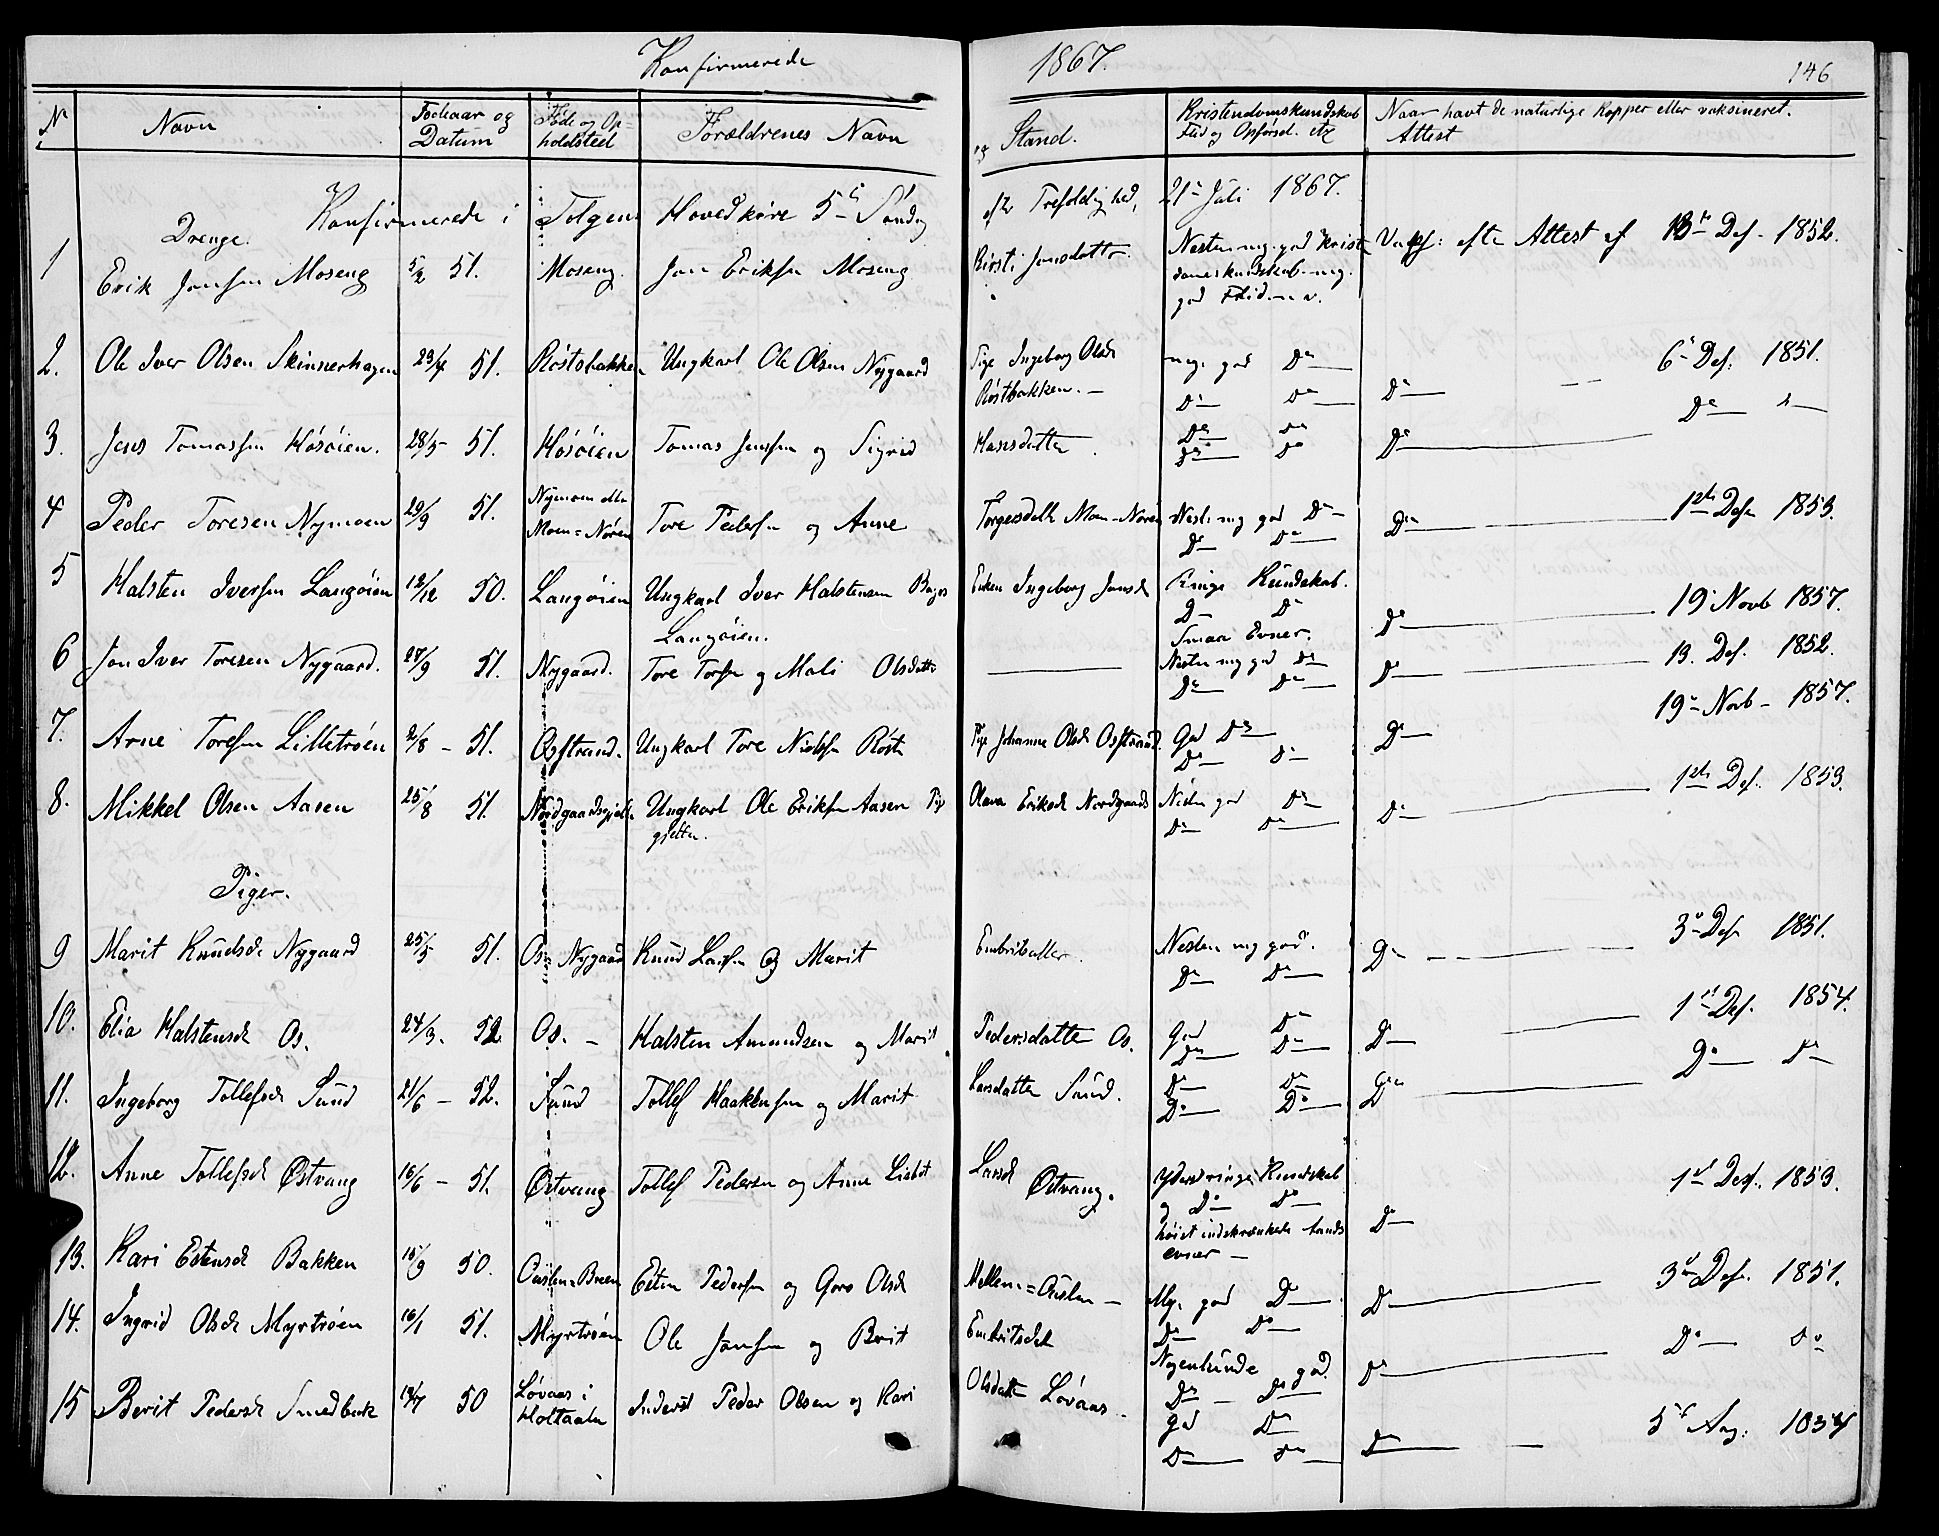 Konfirmerede 1867. 146
Nr Navn Fødeaar og Datum Føde og Opholdsted Forældrenes Navn og Stand. Kristendomskundskab Flid og Opførsel. etc Naar havt de naturlige Kopper eller vaksineret. Attest
Konfirmerede i Tolgens Hovedkirke 5te Søndag efter Trefoldighed, 21de Juli 1867.
Drenge.
1 Erik Jonsen Moseng 5/2 51. Moseng. Jon Eriksen Moseng Kirsti Jonsdatter Nesten mg. god Kristendomskundskab. mg. god Flid Vaks: efter Attest af 13de Des. 1852.
2. Ole Iver Olsen Skinnerhagen 23/4 51. Røstsbakken Ungkarl Ole Olsen Nygaard Pige Ingeborg Olsdr Røstbakken. mg. god Do Do Do Do 6te Des. 1851.
3. Jens Tomassen Høsøien. 28/5 51. Høsøien Tomas Jenssen og Sigrid Hansdatter. Do Do Do Do Do Do Do
4 Peder Toresen Nymoen 29/9 51. Nymoen eller Moen=Nören Tore Pedersen og Anne Torgersdatter Moen-Nören Nest. mg god Do Do Do Do 1ste Desr 1853.
5 Halsten Iversen Langøien 12/12 50. Langøien Ungkarl Iver Halstensen Langøien. Enken Ingeborg Jonsd Ringe Kundskab. Do Do Smaa Evner. Do 19. Novb 1857.
6 Jon Iver Toresen Nygaard. 27/9 51. Nygaard. Tore Torsen og Mali Olsdatter Nesten mg god Do Do Do Do 13. Des. 1852.
7. Arne Toresen Lilletrøen 2/8 - 51. Osstrand. Ungkarl Tore Nielssen Røste Pige Johanne Olsdr Osstrand. God Do Do Do Do 19de Novb - 1857.
8. Mikkel Olsen Aasen 25/8 51. Nordgaardsgjelten Ungkarl Ole Eriksen Aasen Pige Olava Eriksdr Nordgaardsgjelten. Nesten god Do Do Do Do 1ste Des. 1853.
Piger.
9 Marit Knudsdr Nygaard 25/5 51. Os Nygaard Knud Larsen og Marit Embritsdatter. Nesten mg god. Do Do Do 3de Desr 1851.
10. Elia Halstensdr Os. 24/3. 52. Os. - Halsten Amundsen og Marit Pedersdatter Os. God Do Do Do Do 1ste Des. 1854.
11. Ingeborg Tollefsdr Sund 21/6 - 52. Sund Tollef Haakensen og Marit Larsdatter Sund. Do Do Do Do Do Do Do
12. Anne Tollefsdr Østvang 16/6 - 51. Østvang Tollef Pedersen og Anne Lisbet Larsd Østvang. Yderst ringe Kundskab og Do Do høist indskrænkede Aandsevner - Do 1ste Des. 1853.
13. Kari Estensdr Bakken 15/9 50. Øusten=Breen Esten Pedersen og Goro Olsdr Mellem=Øusten - Mg. god Do Do Do Do 3de Des. 1851.
14. Ingrid Olsdr Myrtrøen 16/1 51. Myrtrøen Ole Jonsen og Berit Embritsdr Nogenlunde god. Do Do Do Do Do
15 Berit Pedersdr Smedbæk 14/7 50 Løvaas i Holtaalen Inderst Peder Olsen og Kari Olsdatter Løvaas - God Do Do Do Do 5te Aug.